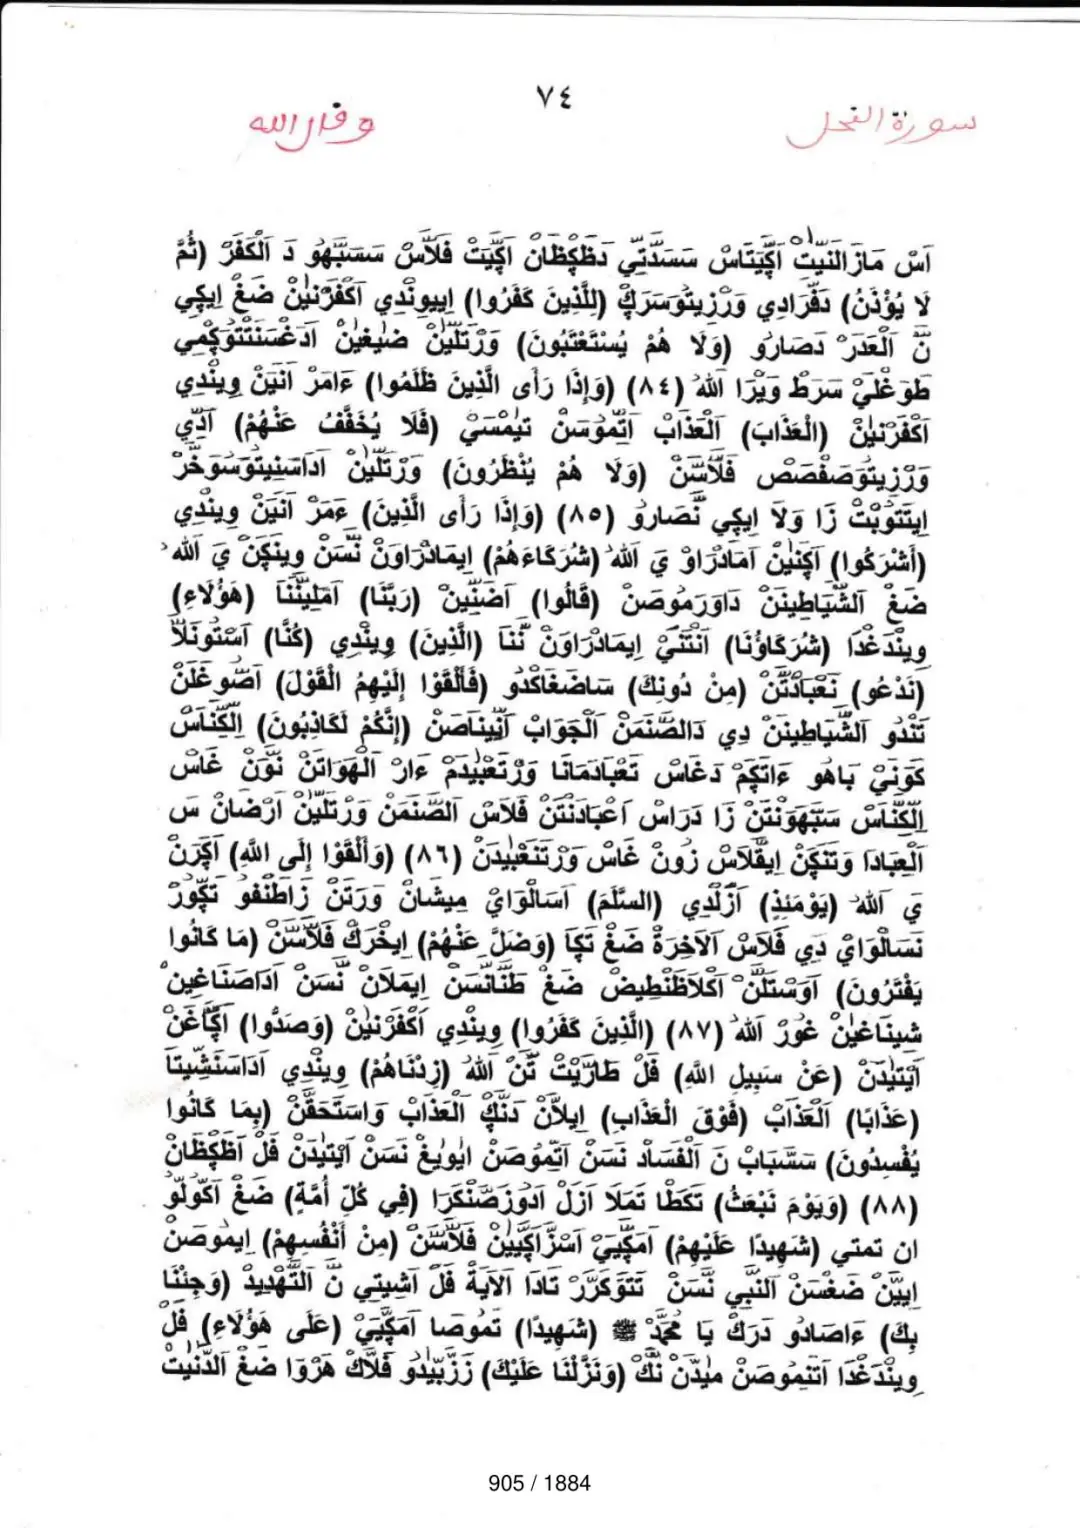 ٧٤
سورة النحل
وقال الله
اَسْ مَازَالنَيِتْ اَكِّيَتَاسْ سَسَدَّتِي دَظَكِظَانْ اكِّيَتْ فَلَاسْ سَسَبَهُو دَ اَلْكَفَرْ (ثُمَّ
لَا يُؤْذَنُ) دَفَرَادِي وَرْزِيتُوسَرَكْ (لِلَّذِينَ كَفَرُوا) اِييونْدِي اَكْفَرْنَيْنْ ضَغْ اِيكِي
نَّ اَلْعَدَرْ دَصَارُو (وَلَا هُمْ يُسْتَعْتَبُونَ) وَرْتَلَيْنْ
طَوَغْلَيْ سَرَطْ وَيْرَا اللهُ (٨٤) (وَإِذَا رَأَى الَّذِينَ ظَلَمُوا) ءَامَرْ اَنَيَنْ وِينْدِي
اَكْفَرْنَيْنْ (الْعَذَابَ) اَلْعَذَابْ اَتَمُوسَنْ تَيِمْسَيْ (فَلَا يُخَفَّفُ عَنْهُمْ) اَدِي
وَرْزِيتُوَصَفْصَصْ فَلَاسَنْ (وَلَا هُمْ يُنْظَرُونَ) وَرْتَلَيْنْ
اِيتَتُوبْتْ زَا وَلَا اِيكِي نَّصَارُو (٨٥) (وَإِذَا رَأَى الَّذِينَ) ءَمَرْ اَنَيَنْ وِينْدِي
(أَشْرَكُوا) اَكَنَيْنْ اَمَادْرَاوْ يَ اللهُ (شُرَكَاءَهُمْ) اِيمَادْرَاوَنْ نَسَنْ وِينَكَنْ يَ اللهُ
ضَغْ اَلشَّيَاطِينَنْ دَاوَرَمُوصَنْ (قَالُوا) اَضَنِّينْ (رَبَّنَا) اَمَلِينَّنَا (هَؤُلَاءِ)
وِينْدَغْدَا (شُرَكَاؤُنَا) اَنْتَنَيْ اِيمَادْرَاوَنْ نَّنَا (الَّذِينَ) وِينْدِي (كُنَّا)
(نَدْعُو) نَعْبَادْتَنْ (مِنْ دُونِكَ) سَاضَغَاكْدُو (فَأَلْقَوْا إِلَيْهِمُ الْقَوْلَ) اَصُوغَلَنْ
تَنْدُو اَلشَّيَاطِينَنْ دِي دَالصَّنَمَنْ اَلْجَوَابْ اَنِّينَاصَنْ (إِنَّكُمْ لَكَاذِبُونَ) اِلْكَنَاسْ
كُونَيْ بَاهُو ءَاتَكَمْ دَغَاسْ تَعْبَادَمَانَا وَرْتَعْبِيدَمْ ءَارْ اَلْهَوَاتَنْ نَوَنْ غَاسْ
اِلْكَنَاسْ سَتَبَهَوْنَتَنْ زَا دَرَاسْ اَعْبَادَنْتَنْ فَلَاسْ اَلصَّنَمَنْ وَرْتَلَيْنْ اَرْضَانْ سَ
اَلْعِبَادَا وَتَنَكَنْ اِيفَلَاسْ زَوَنْ غَاسْ وَرْتَنَعْبِيدَنْ (٨٦) (وَأَلْقَوْا إِلَى اللَّهِ) اَكَرَنْ
يَ اللهُ (يَوْمَئِذٍ) اَزَلْدِي (السَّلَمَ) اَسَالْوَايْ مِيشَانْ وَرَتَنْ زَاطَنْفُو تَكِّورْ
نَسَالْوَايْ دِي فَلَاسْ اَلَاخِرَةْ ضَغْ تَكَا (وَضَلَّ عَنْهُمْ) اِيخْرَكْ فَلَاسَنْ (مَا كَانُوا
يَفْتَرُونَ) اَوَسْتَلَنْ اَكْلَاظَنْطِيضْ ضَغْ طَنَانَسَنْ اِيمَلَانْ نَسَنْ اَدَاصَنَاغِينْ
شِينَاغَيْنْ غُورْ اللهُ (٨٧) (الَّذِينَ كَفَرُوا) وِينْدِي اَكْفَرْنَيْنْ (وَصَدُّوا) اَكَّاغَنْ
اَيْتَيْدَنْ (عَنْ سَبِيلِ اللَّهِ) فَلْ طَارَيْتْ تَنْ اللهُ (زِدْنَاهُمْ) وِينْدِي اَدَاسَنَشِيتَا
(عَذَابًا) اَلْعَذَابْ (فَوْقَ الْعَذَابِ) اِيلَانْ دَنَكْ اَلْعَذَابْ وَاسْتَحَقَنْ (بِمَا كَانُوا
يُفْسِدُونَ) سَسَّبَابْ نَ اَلْفَسَادْ نَسَنْ اَتَمُوصَنْ اَيُويَغْ نَسَنْ اَيْتَيْدَنْ فَلْ اَظَكِظَانْ
(٨٨) (وَيَوْمَ نَبْعَثُ) تَكَطَا تَمَلَا اَزَلْ اَدُوزَصَنْكَرَا (فِي كُلِّ أُمَّةٍ) ضَغْ اَكُولَو
ان تمتي (شَهِيدًا عَلَيْهِمْ) اَمَكِّيَيْ اَسْزَاكِّيَيْنْ فَلَاسَنْ (مِنْ أَنْفُسِهِمْ) اِيمُوصَنْ
اِيَيَنْ ضَغْسَنْ اَلنَّبِي نَسَنْ تَتَوَكَرَرْ تَادَا اَلايَةْ فَلْ اَشِيتِي نَّ اَلتَّهْدِيدْ (وَجِئْنَا
بِكَ) ءَاصَادُو دَرَكْ يَا مُحَمَّدْ ﷺ (شَهِيدًا) تَمُوصَا اَمَكِّيَيْ (عَلَى هَؤُلَاءِ) فَلْ
وِينْدَغْدَا اَتَنِمُوصَنْ مَيْدَنْ نَكْ (وَنَزَّلْنَا عَلَيْكَ) زَزَبِيدُو فَلَاكْ هَرْوَا ضَغْ اَلدُّنْيَتْ
905 / 1884